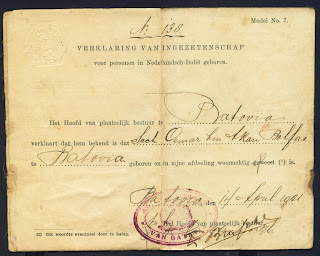 No 138
Model No. 7.
VERKLARING VAN INGEZETENSCHAP
voor personen in Nederlandsch-Indië geboren.
Het Hoofd van plaatselijk bestuur te Batavia
verklaart dat hem bekend is dat Said Oemar bin Akan Balfas
te Batavia geboren en in zijne afdeeling woonachtig geweest (¹) is.
Batavia, den April
Het Hoofd van plaatselijk bestuur,
VAN BATA
(1) Dit woordje eventueel door te halen.